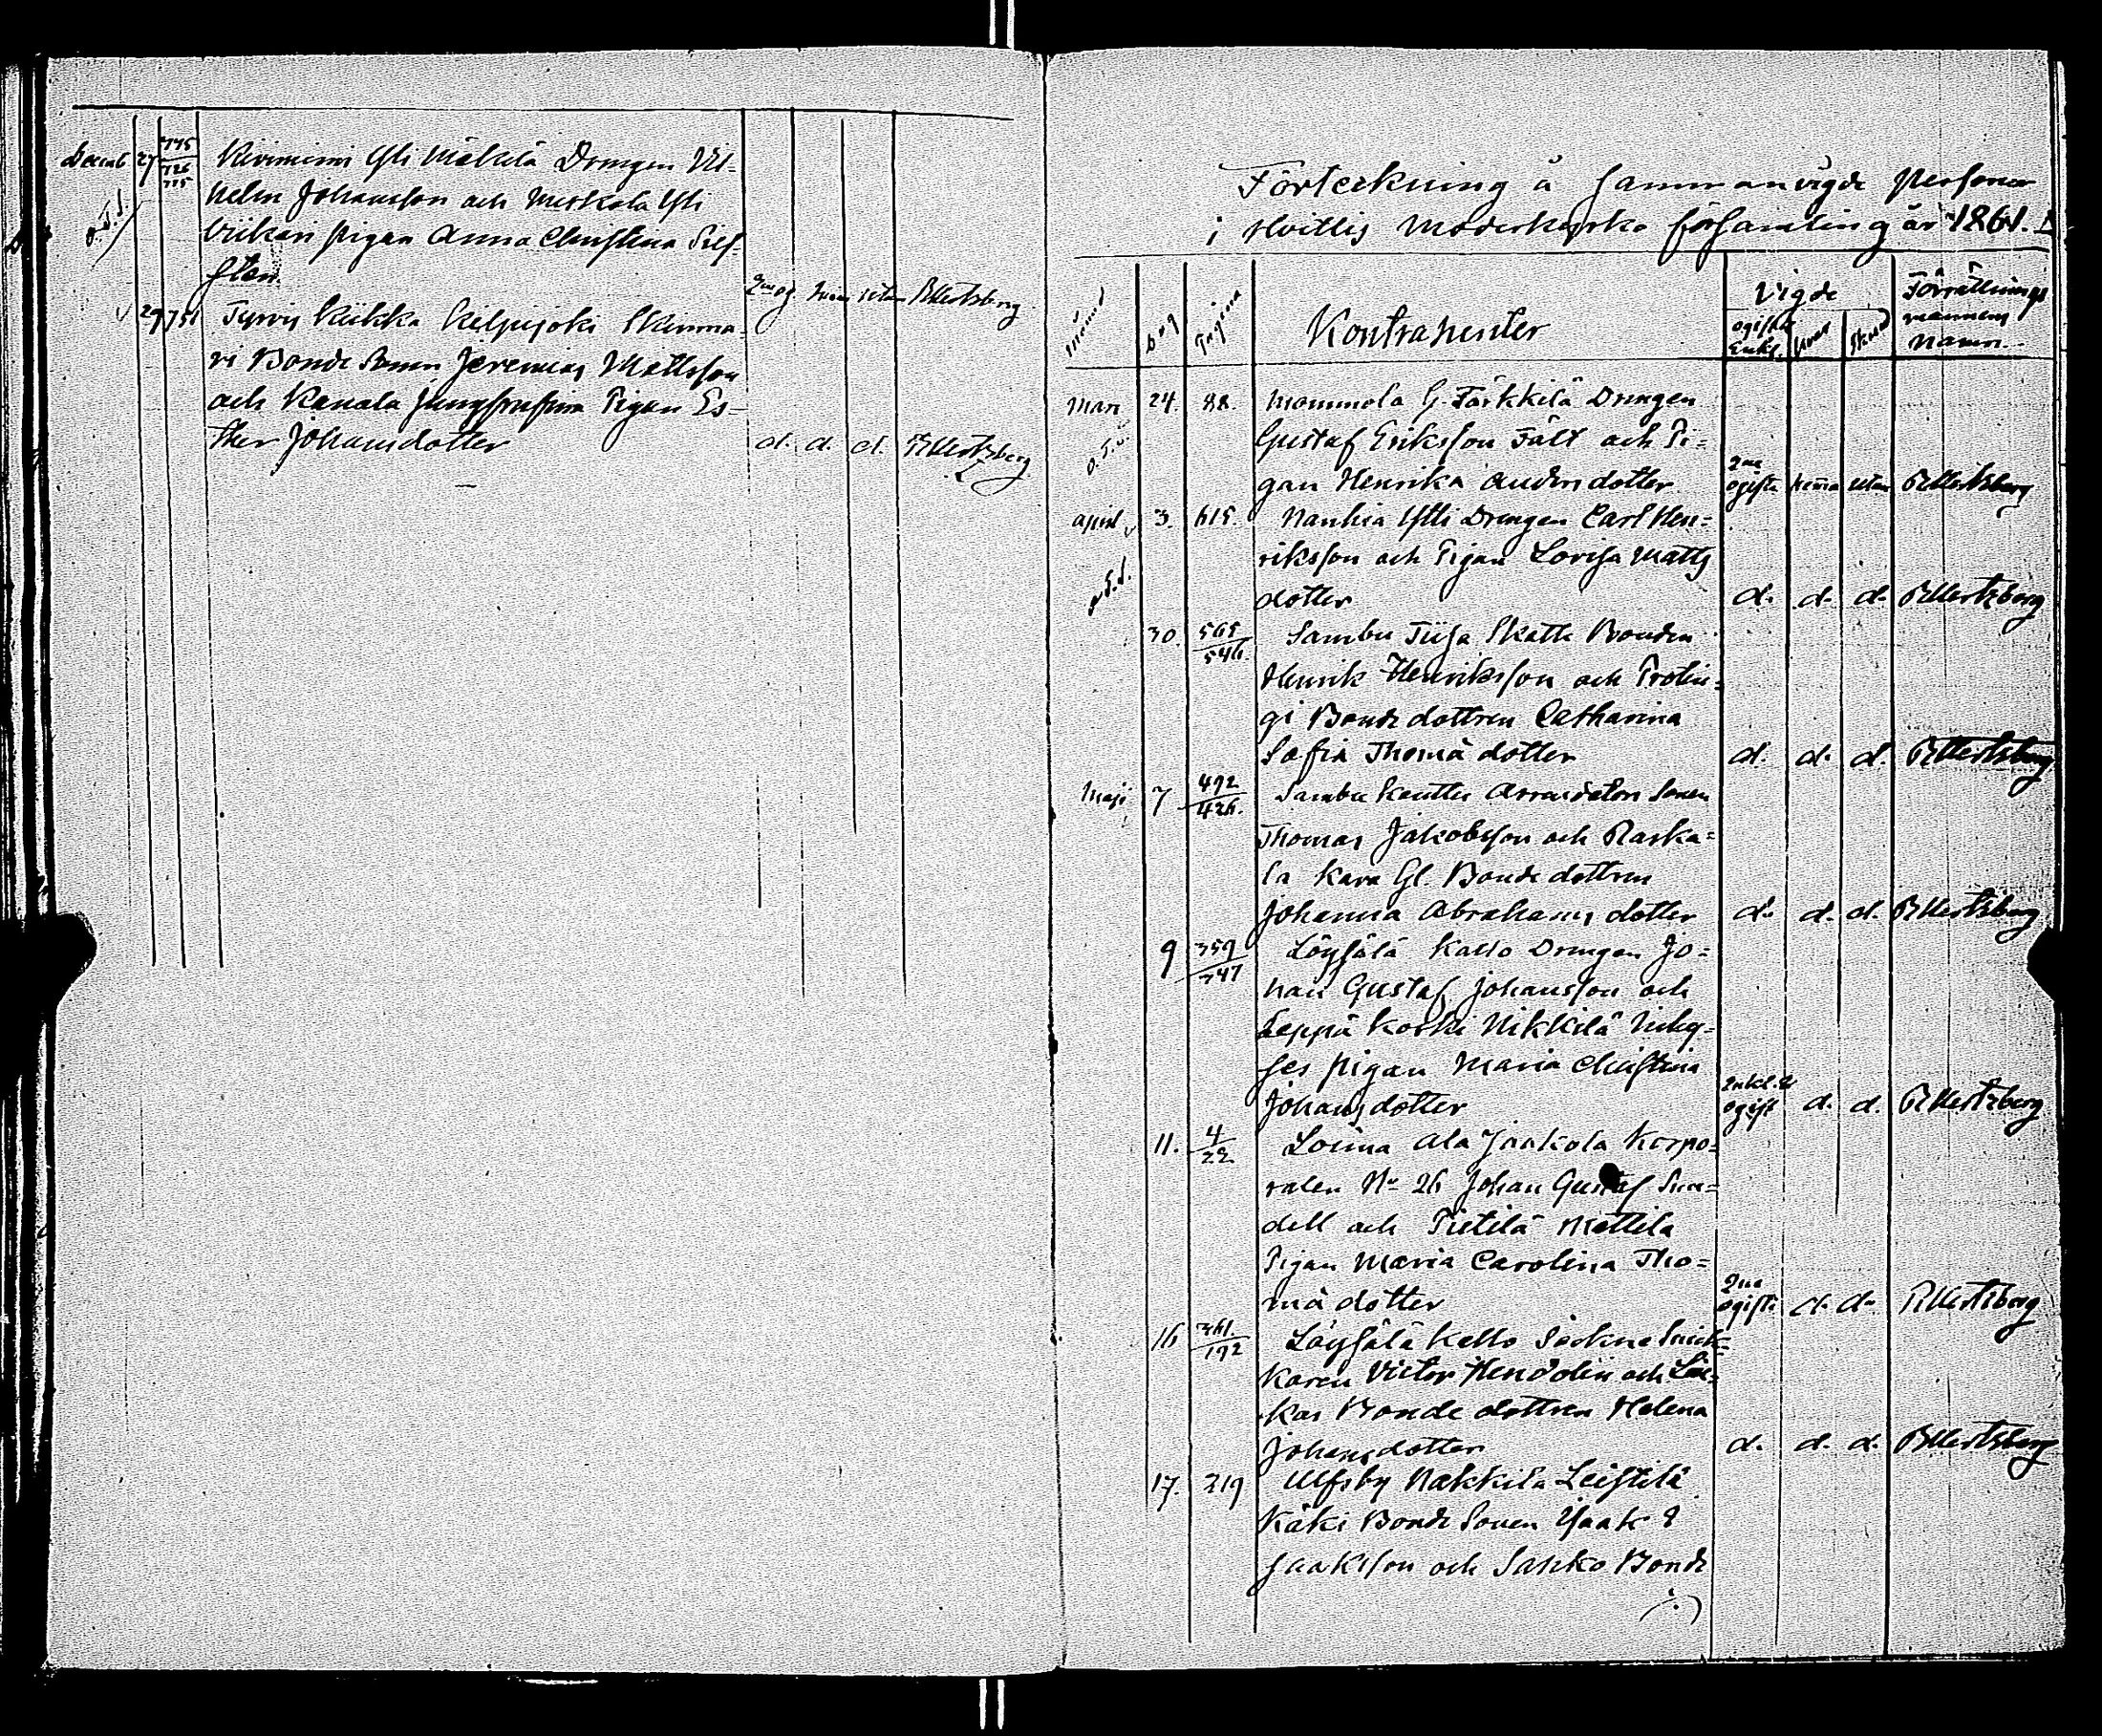 Decemb 27 775/726/775 Kiviniemi Yli Mäkilä Drengen Vil=
helm Johansson och Meskala Yli
Viikari pigan Anna Christina Siff=
sten. 2ne og. hema sitan R Mertzberg
29 751 Tyrvis Kiikka Kilpijoki Skinna=
ri Bonde Sonen Jeremias Mattsson
och Kauala Jungfrufina Pigan Es=
ther Johansdotter d. d. d. R Mertzberg
Förteckning å sammanvigde personer
i Hvittis Moderkyrko församling år 1861.
Månad Dag Pagina Kontrahenter Vigde Förrättnings
ogifta Enkl. mannens
namn.
Mars 24. 88. Mommola G. Färkkilä Drengen
Gustaf Eriksson Fält och Pi=
gan Henrika Andersdotter 2ne ogifta hema sitan R Mertzberg
April 3. 615. Nanhia Ytti Drengen Carl Hen=
riksson och Pigan Lovisa Matts
dotter d. d. d. R Mertzberg
30. 565/546. Sambu Tiisa Skatte Bonden
Henrik Henriksson och
gi Bonde dottren Catharina
Sofia Thomä dotter d. d. d. R Mertzberg
Maji 7 492/426. Sambu Keuttu Arrendators Sonen
Thomas Jakobsson och Raska=
la Kara Gl. Bonde dottren
Johanna Abrahams dotter d. d. d. R Mertzberg
9 359/347 Löysälä Kallo Drengen Jo=
han Gustaf Johansson och
Leppä Koski Nikkilä Inhy=
ses pigan Maria Christina
Johansdotter Enkl. & ogift d. d. R Mertzberg
11. 4/22 Loima Ala Jaakola Korpo=
ralen No 26 Johan Gustaf Sun=
dell och Pietilä Mattila
Pigan Maria Carolina Tho=
mä dotter 2ne ogifta d. d. R Mertzberg
16 361./192 Löysälä Kallo Sockne Snick=
karen Victor Hendolin och
kas Bonde dottren Helena
Johansdotter d. d. d. R Mertzberg
17. 219 Ulfsby Nakkila Leistilä
Käki Bonde Sonen Isaak
Isaaksson och Sahko Bonde